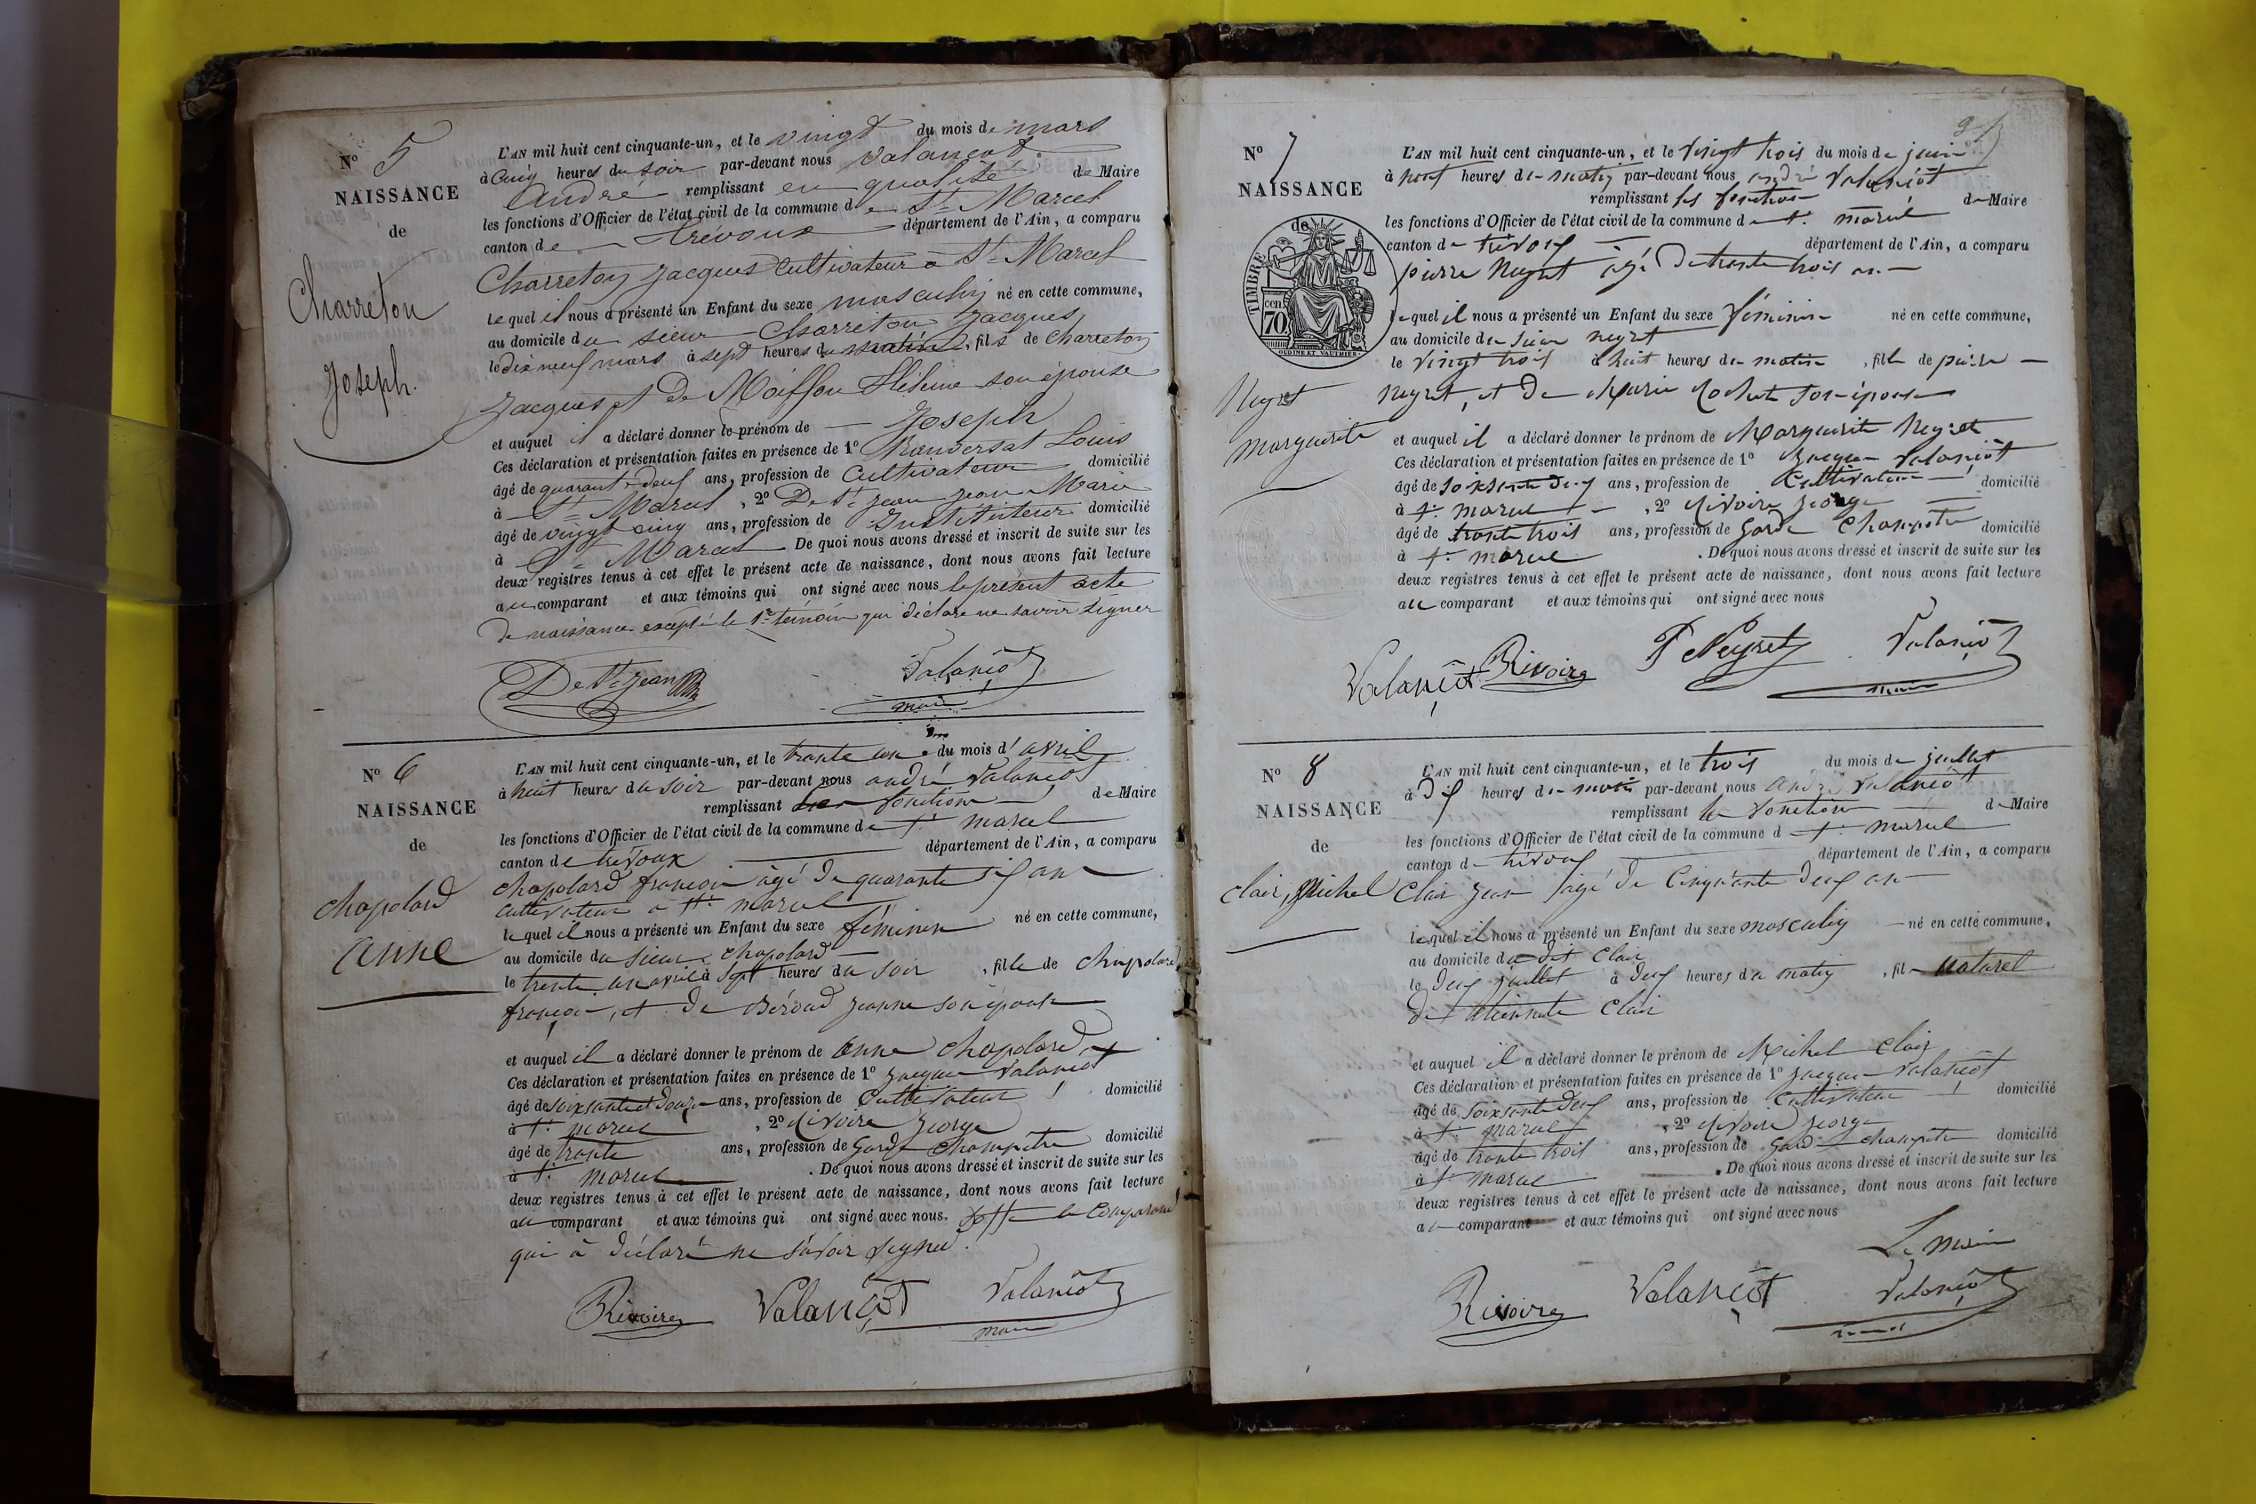 N° 5
NAISSANCE
de
Charreton
Joseph.
L'AN mil huit cent cinquante-un, et le vingt du mois de mars
à cinq heures du soir par-devant nous Valançot
André remplissant en qualité de Maire
les fonctions d'Officier de l'état civil de la commune de St Marcel
canton de Trévoux département de l'Ain, a comparu
Charreton Jacques Cultivateur à St Marcel
lequel il nous a présenté un Enfant du sexe masculin né en cette commune,
au domicile du sieur Charreton Jacques
le dix neuf mars à sept heures du matin, fils de Charreton
Jacques et De Moiffon Hélène son épouse
et auquel il a déclaré donner le prénom de Joseph
Ces déclaration et présentation faites en présence de 1° Louis
âgé de quarante-deux ans, profession de Cultivateur domicilié
à St Marcel, 2° De St Jean Jean Marie
âgé de vingt cinq ans, profession de Instituteur domicilié
à St Marcel De quoi nous avons dressé et inscrit de suite sur les
deux registres tenus à cet effet le présent acte de naissance, dont nous avons fait lecture
au comparant et aux témoins qui ont signé avec nous le présent acte
de naissance excepté le 1er témoin qui déclare ne savoir signer
De St Jean Valançot
maire
N° 6
NAISSANCE
de
chapolard
anne
L'AN mil huit cent cinquante-un, et le trante un du mois d'avril
à huit heures du soir par-devant nous andré Valançot
remplissant les fonction de Maire
les fonctions d'Officier de l'état civil de la commune de St marcel
canton de trévoux département de l'Ain, a comparu
chapolard françois âgé de quarante six ans
cultivateur à St marcel
lequel il nous a présenté un Enfant du sexe féminin né en cette commune,
au domicile du sieur chapolard
le trente un avril à sept heures du soir, fille de chapolard
françois, et de Béroud jeanne son épouse
et auquel il a déclaré donner le prénom de anne chapolard
Ces déclaration et présentation faites en présence de 1° jacque Valançot
âgé de soixante et douze ans, profession de Cultivateur domicilié
à St marcel, 2° Rivoire george
âgé de trante ans, profession de Garde Champêtre domicilié
à St marcel. De quoi nous avons dressé et inscrit de suite sur les
deux registres tenus à cet effet le présent acte de naissance, dont nous avons fait lecture
au comparant et aux témoins qui ont signé avec nous. le comparant
qui à déclaré ne savoir signer.
Rivoire Valançot Valançot
maire
N° 7
NAISSANCE
de
TIMBRE
70
OUDINE ET VAUTHIER
Neyret
marguerite
L'AN mil huit cent cinquante-un, et le vingt trois du mois de juin
à neuf heures du matin par-devant nous andré Valançot
remplissant les fonction de Maire
les fonctions d'Officier de l'état civil de la commune de St marcel
canton de trévoux département de l'Ain, a comparu
pierre Neyret âgé de trante trois ans
lequel il nous a présenté un Enfant du sexe féminin né en cette commune,
au domicile du sieur neyret
le vingt trois à huit heures du matin, fille de pierre
neyret, et de Marie Rochet son épouse
et auquel il a déclaré donner le prénom de Marguerite Neyret
Ces déclaration et présentation faites en présence de 1° jacque Valançot
âgé de soixante deux ans, profession de Cultivateur domicilié
à St marcel, 2° Rivoire george
âgé de trante trois ans, profession de Garde Champêtre domicilié
à St marcel. De quoi nous avons dressé et inscrit de suite sur les
deux registres tenus à cet effet le présent acte de naissance, dont nous avons fait lecture
au comparant et aux témoins qui ont signé avec nous
Valançot Rivoire P Neyret Valançot
maire
N° 8
NAISSANCE
de
clair, Michel
L'AN mil huit cent cinquante-un, et le trois du mois de juillet
à dix heures du matin par-devant nous andré Valançot
remplissant les fonction de Maire
les fonctions d'Officier de l'état civil de la commune d St marcel
canton de trévoux département de l'Ain, a comparu
Clair jean âgé de Cinquante deux ans
lequel il nous a présenté un Enfant du sexe masculin né en cette commune,
au domicile du dit Clair
le deux juillet à deux heures du matin, fil naturel
de Clair
et auquel il a déclaré donner le prénom de Michel Clair
Ces déclaration et présentation faites en présence de 1° jacque Valançot
âgé de soixante deux ans, profession de Cultivateur domicilié
à St marcel, 2° Rivoire george
âgé de trante trois ans, profession de Garde champêtre domicilié
à St marcel. De quoi nous avons dressé et inscrit de suite sur les
deux registres tenus à cet effet le présent acte de naissance, dont nous avons fait lecture
au comparant et aux témoins qui ont signé avec nous
Le maire
Rivoire Valançot Valançot